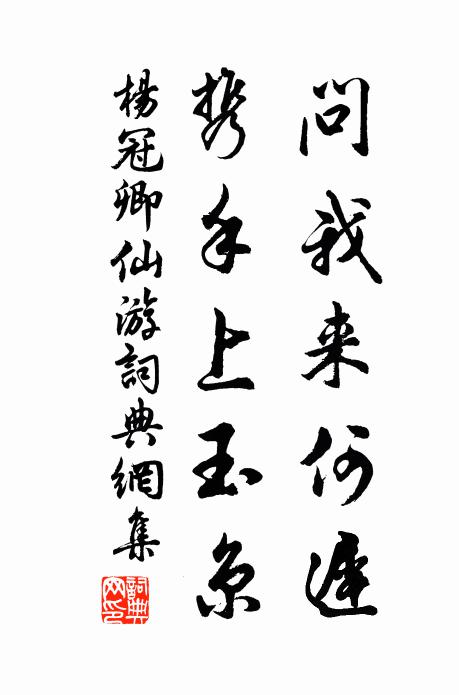 問我来何遲
携手上玉京
楊冠卿仙游詞典網集
詞典網印